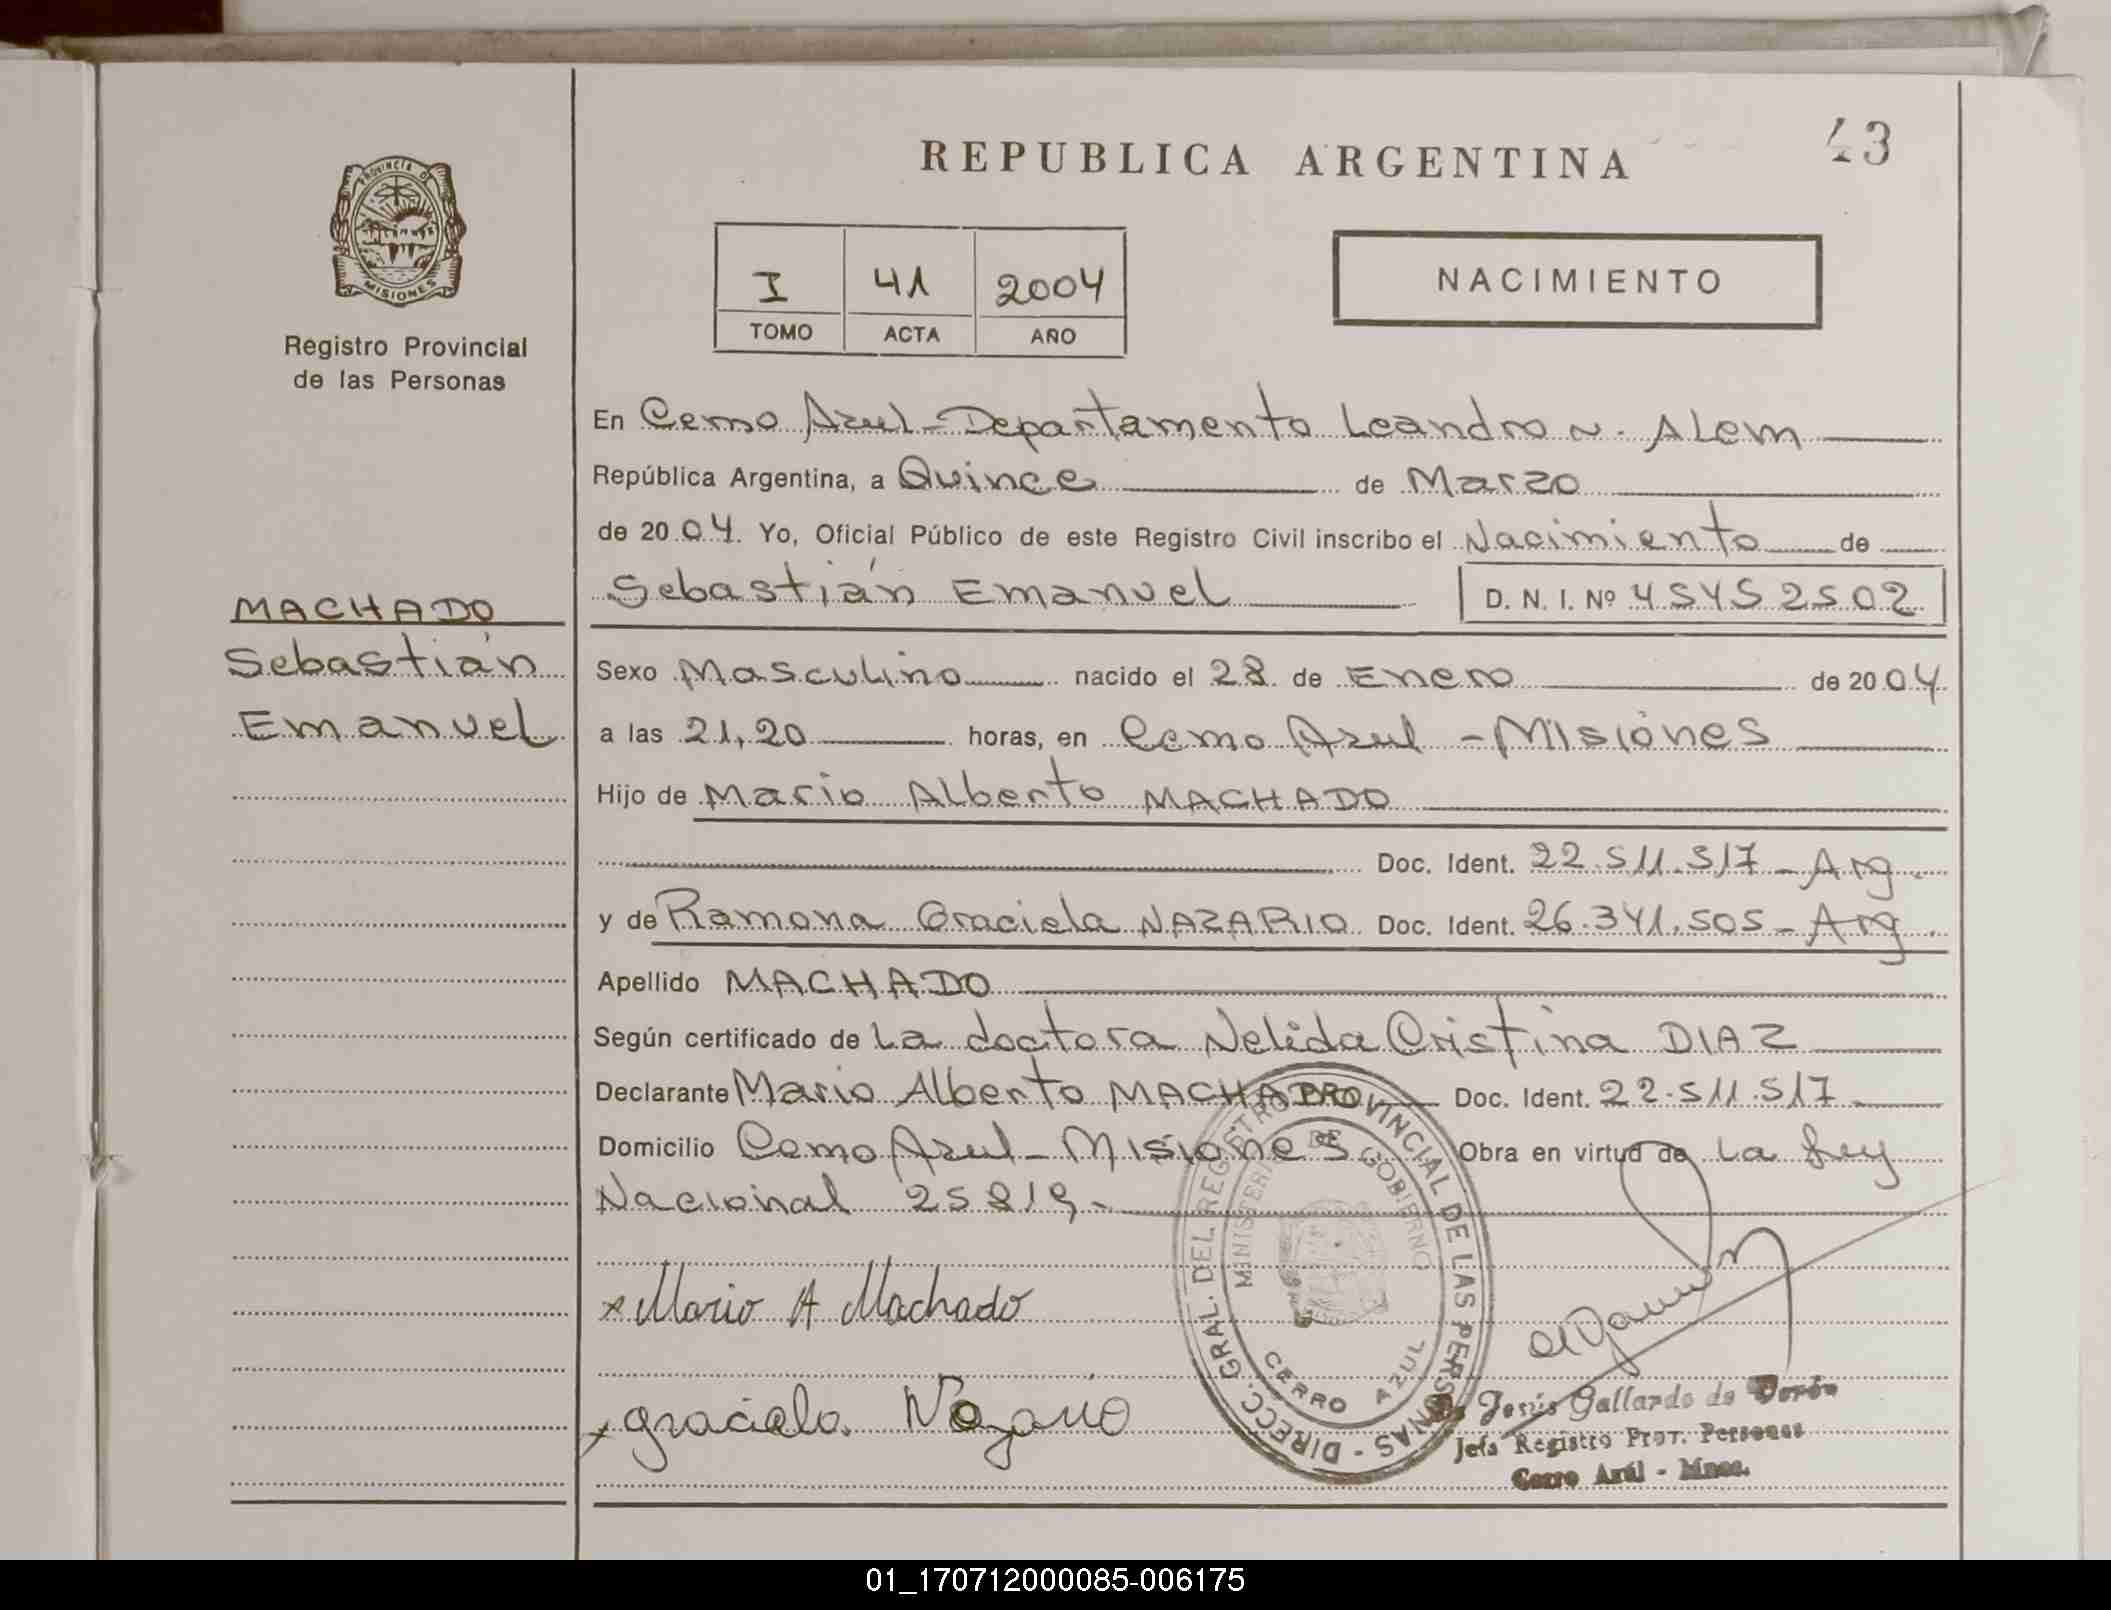 43
REPUBLICA ARGENTINA
PROVINCIA DE
MISIONES
Registro Provincial
de las Personas
I 41 2004
TOMO ACTA AÑO
NACIMIENTO
En Cerro Azul - Departamento Leandro N. Alem
República Argentina, a Quince de Marzo
de 2004. Yo, Oficial Público de este Registro Civil inscribo el Nacimiento de
Sebastián Emanuel D. N. I. Nº 45452502
MACHADO
Sebastián
Emanuel
Sexo Masculino nacido el 28 de Enero de 2004
a las 21,20 horas, en Cerro Azul - Misiones
Hijo de Mario Alberto MACHADO
Doc. Ident. 22.511.517 - Arg.
y de Ramona Graciela NAZARIO Doc. Ident. 26.341.505 - Arg.
Apellido MACHADO
Según certificado de La doctora Nelida Cristina DIAZ
Declarante Mario Alberto MACHADO Doc. Ident. 22.511.517
Domicilio Cerro Azul - Misiones Obra en virtud de La Ley
Nacional 25819.-
x Mario A Machado
x graciela Nazario
DIRECC. GRAL. DEL REGISTRO PROVINCIAL DE LAS PERSONAS -
MINISTERIO DE GOBIERNO
CERRO AZUL
Jesús Gallardo de
Jefa Registro Prov. Personas
Cerro Azul - Mnes.
01_170712000085-006175